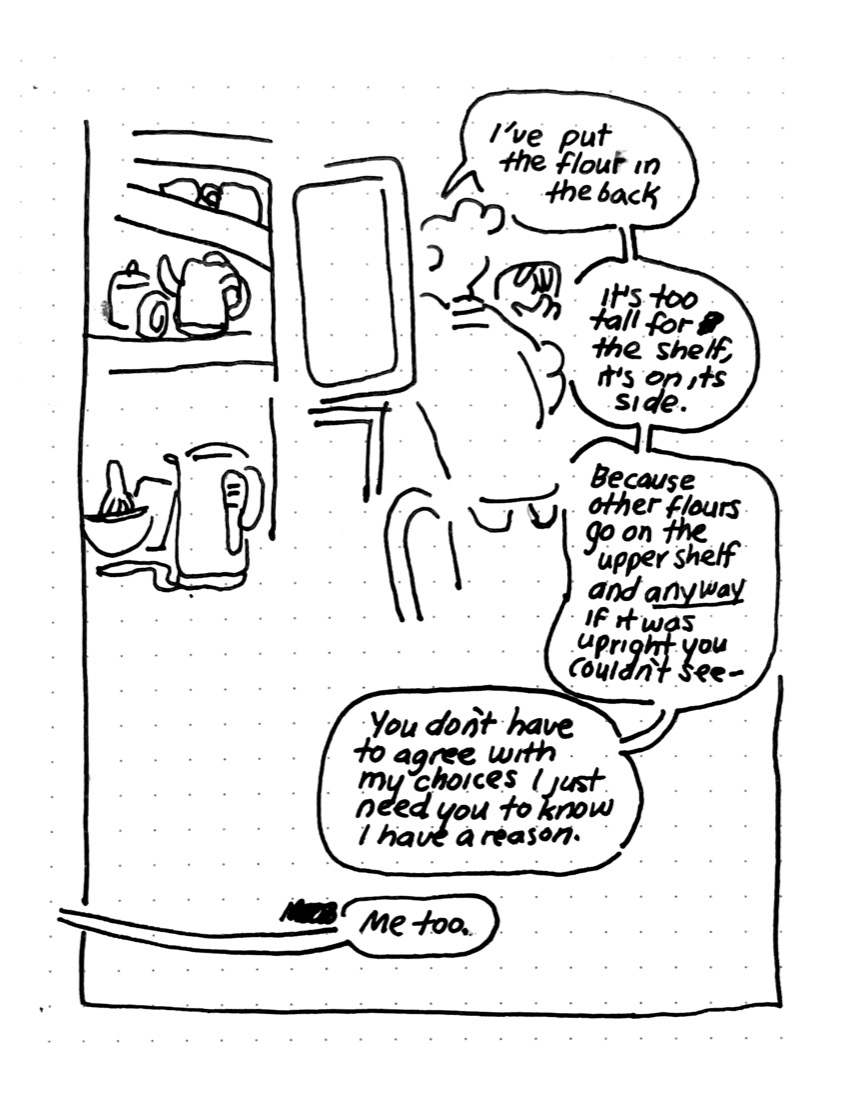 I've put
the flour in
the back
It's too
tall for
the shelf,
it's on its
side.
Because
other flours
go on the
upper shelf
and anyway
if it was
upright you
couldn't see-
You don't have
to agree with
my choices I just
need you to know
I have a reason.
Me too.